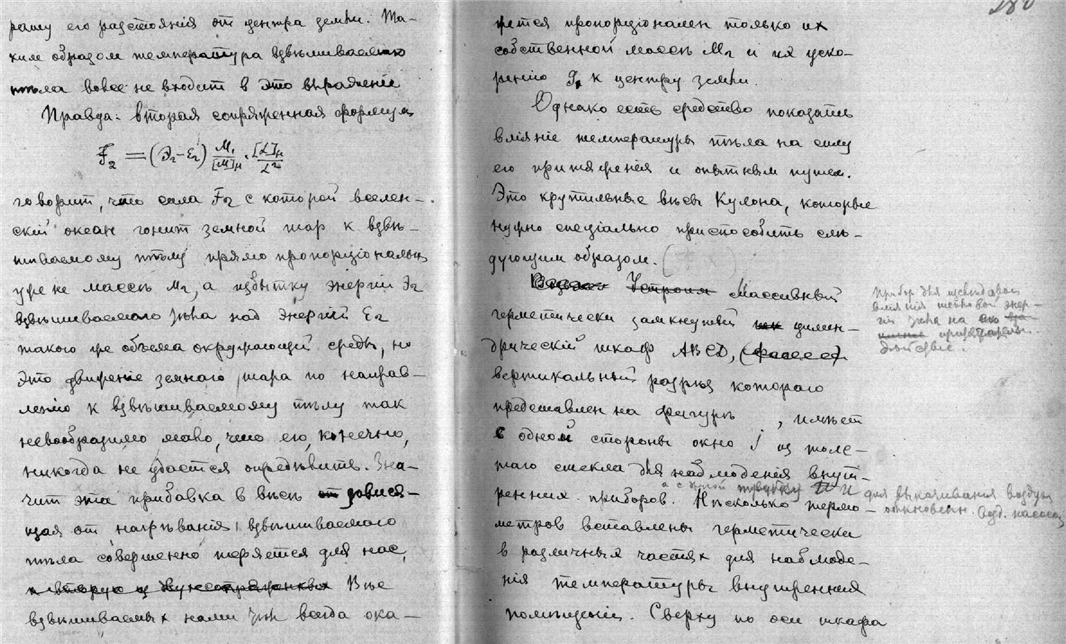 рату его разстоянія от центра земли. Та-
ким образом температура взвѣшиваемаго
тѣла вовсе не входит в это выраженіе
Правда вторая сопряженная формула
F₂ = (Э₂-Е₂) M₁/[M]μ · [L]μ/L²
говорит, что сила F₂ с которой вселен-
скій океан гонит земной шар к взвѣ-
шиваемому тѣлу прямо пропорціональна
уже не массѣ M₂, а избытку энергіи Э₂
взвѣшиваемаго тѣла над энергіей Е₂
такого же объема окружающей среды, но
это движеніе земнаго шара по направ-
ленію к взвѣшиваемому тѣлу так
невообразимо мало, что его, конечно,
никогда не удастся опредѣлить. Зна-
чит эта прибавка в вѣсѣ завися-
щая от нагрѣванія взвѣшиваемаго
тѣла совершенно теряется для нас,
и вторую из
взвѣшиваемых нами тѣл всегда ока-
жется пропорціонален только их
собственной массѣ M₂ и их уско-
ренію g₁ к центру земли.
Однако есть средство показать
вліяніе температуры тѣла на силу
его притяженія и опытным путем.
Это крутильные вѣсы Кулона, которые
нужно спеціально приспособить слѣ-
дующим образом.
Устроим Массивный
герметически замкнутый цилин-
дрическій шкаф ABCD,
вертикальный разрѣз котораго
представлен на фигурѣ , имѣет
с одной стороны окно из толс-
таго стекла для наблюденія внут-
ренних приборов. Нѣсколько термо-
метров вставлены герметически
в различных частях для наблюде-
нія температуры внутренняя
помѣщеній. Сверху по оси шкафа
Прибор для
вліянія тепловой энер-
гіи тѣла на его
дѣйствіе.
а с другой трубку для выкачиванія воздуха
обыкновен. возд. насосом